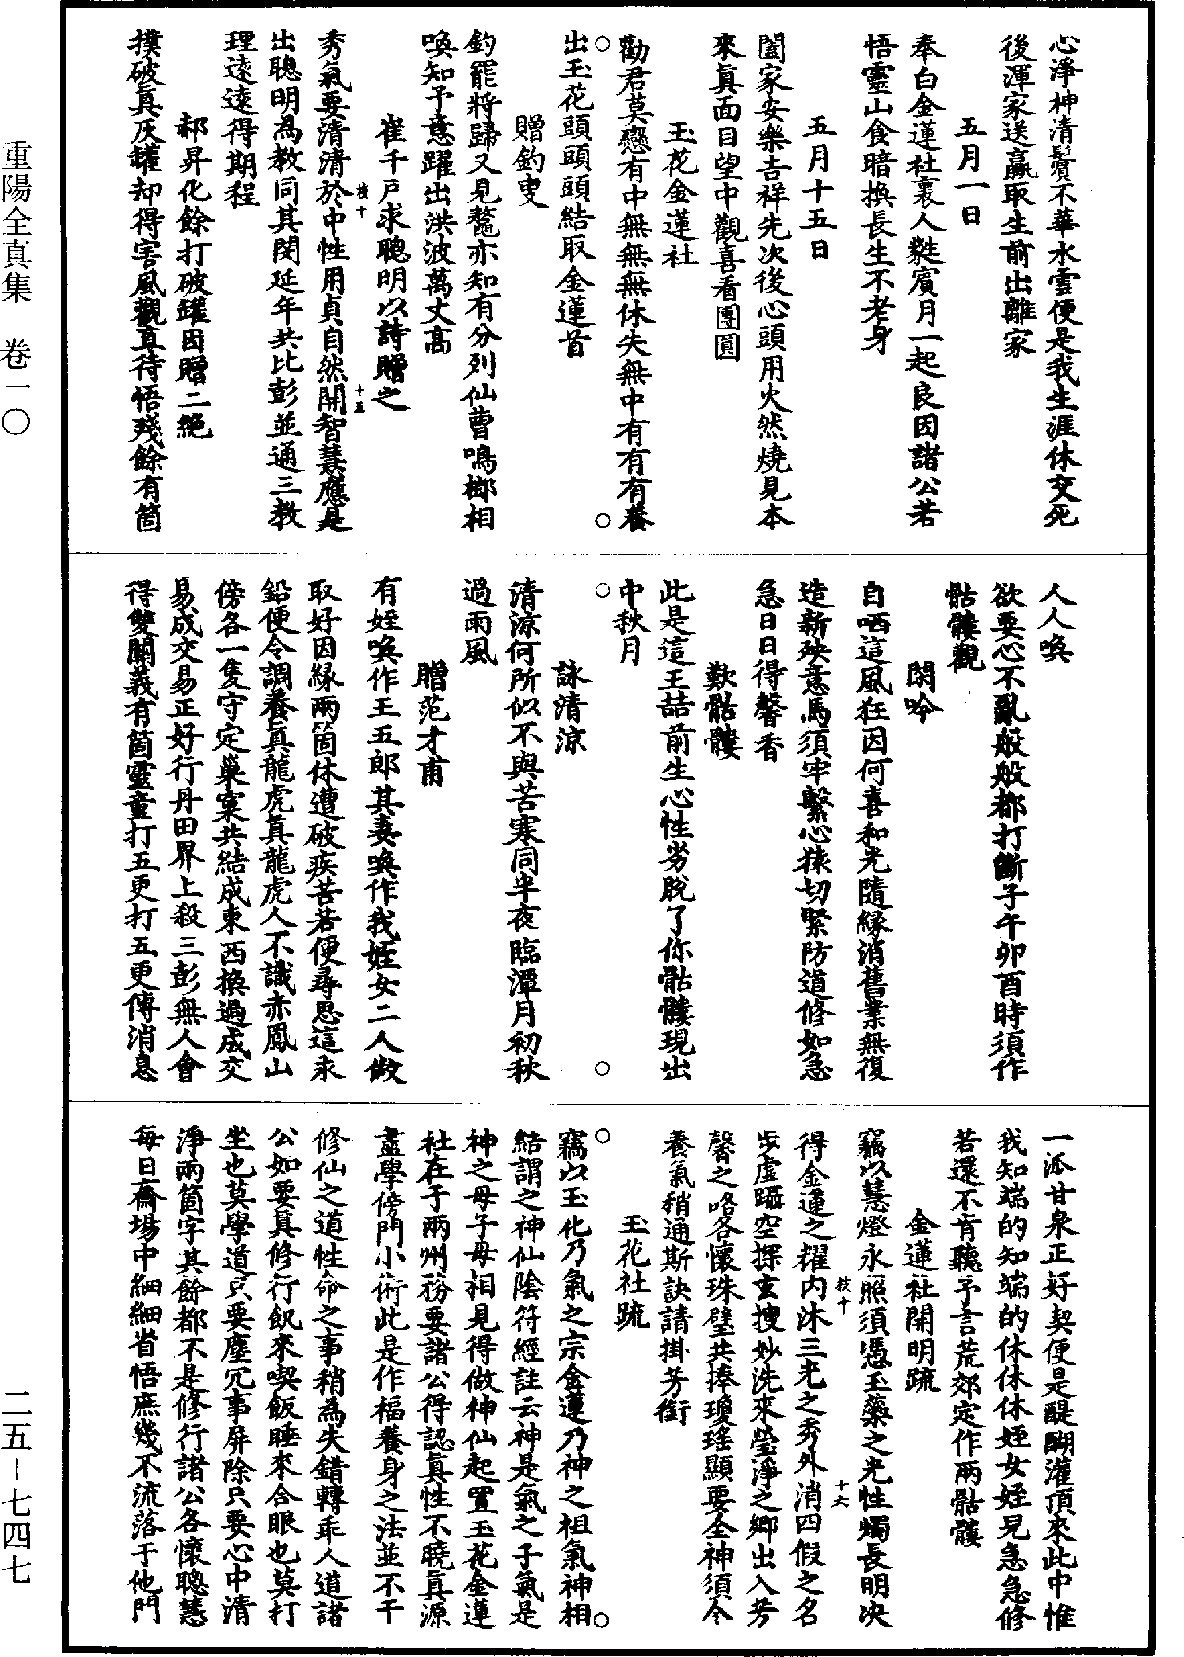 心淨神清鬢不華水雲便是我生涯休交死
後渾家送贏取生前出離家
五月一日
奉白金蓮社裏人蕤賓月一起良因諸公若
悟靈山食暗換長生不老身
五月十五日
闔家安樂吉祥先次後心頭用火然燒見本
來真面目望中觀喜看團圓
玉花金蓮社
勸君莫戀有中無無無休失無中有有有養
出玉花頭頭頭結取金蓮首
贈釣叟
釣罷將歸又見鼇亦知有分列仙曹鳴榔相
喚知予意躍出洪波萬丈高
崔千戶求聰明以詩贈之
秀氣要清清於中性用貞自然開智慧應是
出聰明為教同其閔延年共比彭並通三教
理遠遠得期程
郝昇化餘打破罐因贈二絕
撲破真灰罐却得害風觀直待悟殘餘有箇
人人喚
欲要心不亂般般都打斷子午卯酉時須作
骷髏觀
閑吟
自哂這風狂因何喜和光隨緣消舊業無復
造新殃意馬須牢繫心猿切緊防道修如急
急日日得馨香
歎骷髏
此是這王喆前生心性劣脫了你骷髏現出
中秋月
詠清涼
清涼何所似不與苦寒同半夜臨潭月初秋
過雨風
贈范才甫
有姪喚作王五郎其妻喚作我姪女二人做
取好因緣兩箇休遭破疾苦若便尋思這汞
鉛便令調養真龍虎真龍虎人不識赤鳳山
傍各一隻守定巢窠共結成東西換過成交
易成交易正好行丹田界上殺三彭無人會
得雙關義有箇靈童打五更打五更傳消息
一派甘泉正好契便是醍醐灌頂來此中惟
我知端的知端的休休休姪女姪兒急急修
若還不肯聽予言荒郊定作兩骷髏
金蓮社開明疏
竊以慧燈永照須憑玉藥之光性燭長明決
得金蓮之耀內沐三光之秀外消四假之名
步虛躡空探玄搜妙洗來瑩淨之鄉出入芳
馨之咯各懷珠璧共捧瓊瑤顯要全神須令
養氣稍通斯訣請掛芳銜
玉花社疏
竊以玉化乃氣之宗金蓮乃神之祖氣神相
結謂之神仙陰符經註云神是氣之子氣是
神之母子母相見得做神仙起置玉花金蓮
社在于兩州務要諸公得認真性不曉真源
盡學傍門小術此是作福養身之法並不干
修仙之道性命之事稍為失錯轉乖人道諸
公如要真修行飢來喫飯睡來合眼也莫打
坐也莫學道只要塵冗事屏除只要心中清
淨兩箇字其餘都不是修行諸公各懷聰慧
每日齋場中細細省悟庶幾不流落于他門
枝十
十五
枝十
十六
重陽全真集 卷一〇
二五-七四七